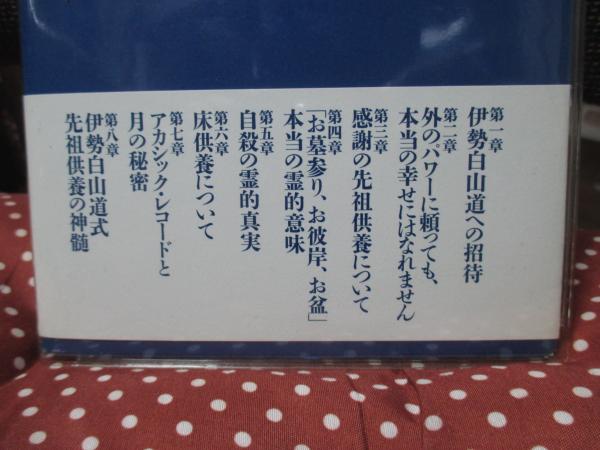 第一章
伊勢白山道への招待
第二章
外のパワーに頼っても、
本当の幸せにはなれません
第三章
感謝の先祖供養について
第四章
「お墓参り、お彼岸、お盆」
本当の霊的意味
第五章
自殺の霊的真実
第六章
床供養について
第七章
アカシック・レコードと
月の秘密
第八章
伊勢白山道式
先祖供養の神髄